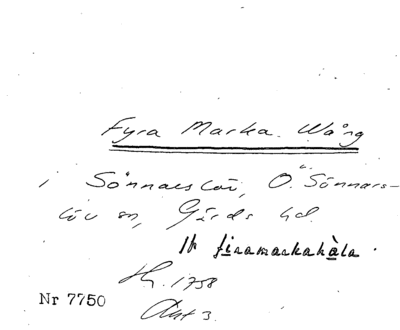 Fyra Marka Wång
i Sönnarslöv, Ö. Sönnars-
löv sn, Gärds hd.
firamarkahåla.
Nr 7750
1758
Akt 3.